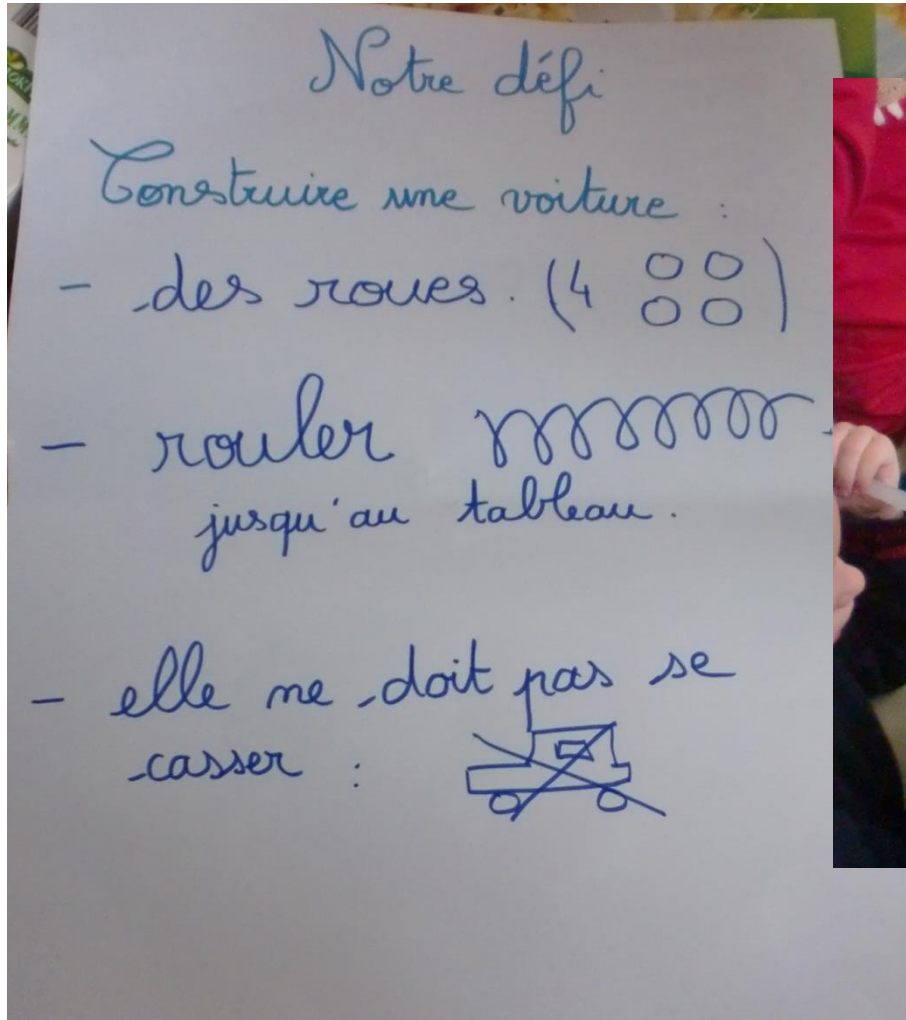 Notre défi
Construire une voiture :
- des roues. (4 )
- rouler
jusqu'au tableau.
- elle ne doit pas se
casser :